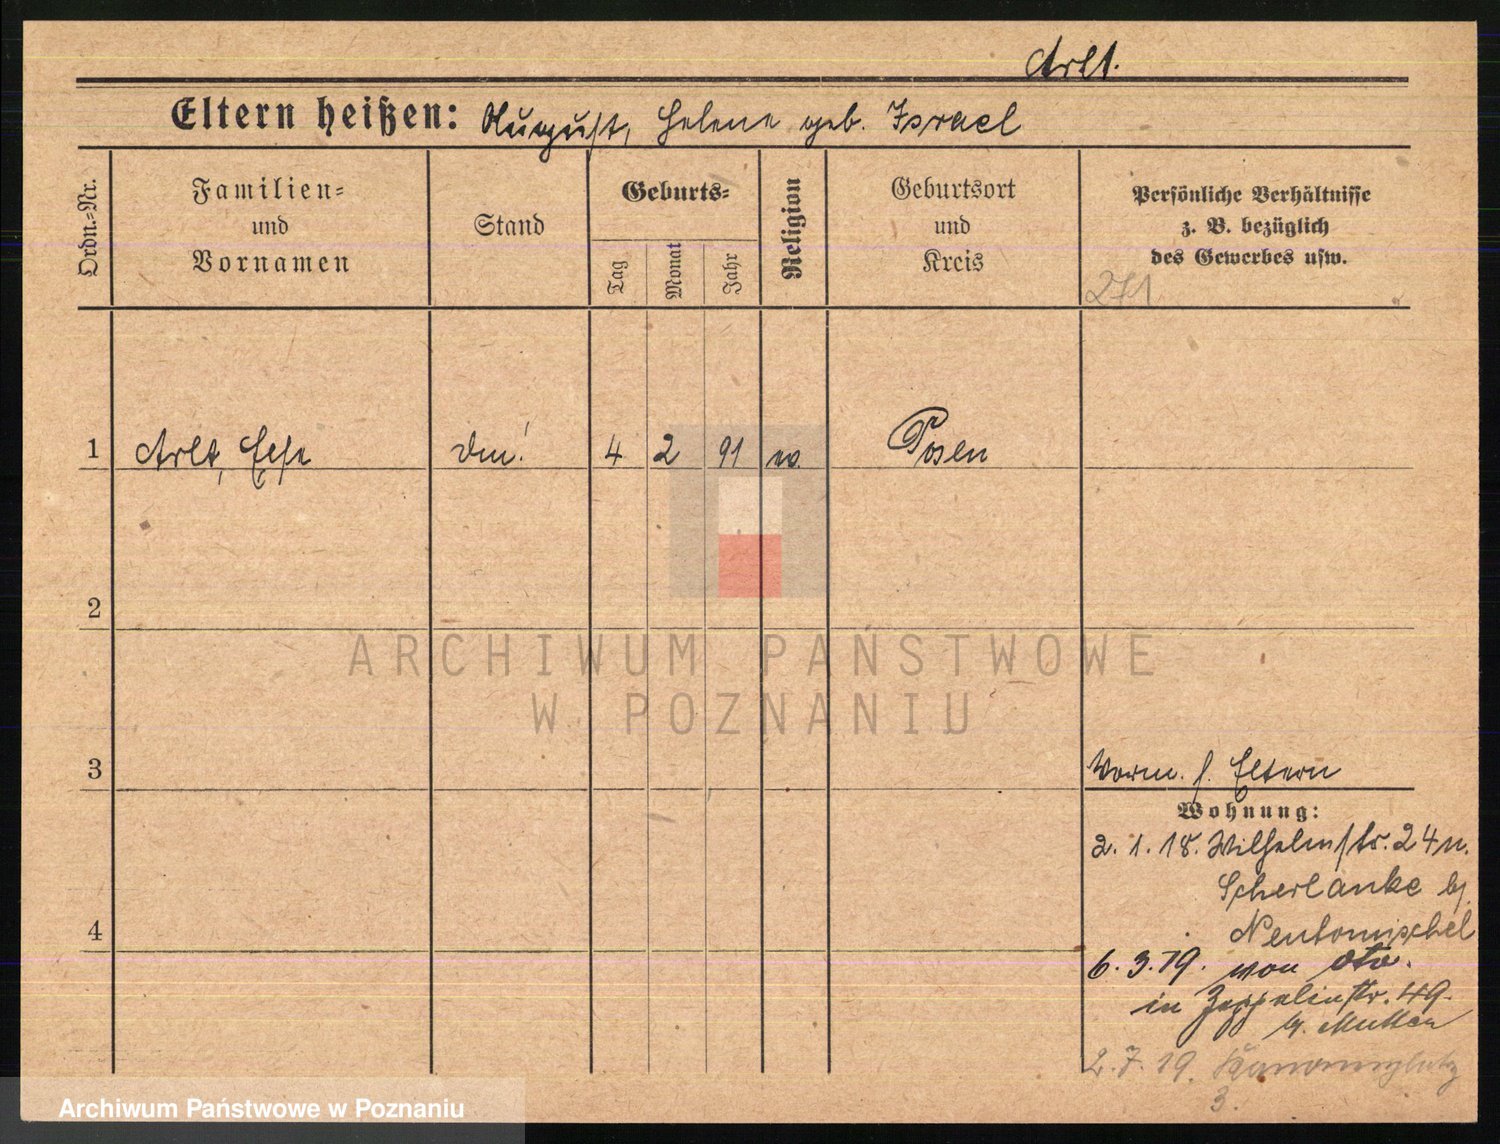 Arlt.
Eltern heißen: August, Helene geb. Israel
Ordn.=Nr.
Familien=
und
Vornamen
Stand
Geburts=
Tag
Monat
Jahr
Religion
Geburtsort
und
Kreis
Persönliche Verhältnisse
z. B. bezüglich
des Gewerbes usw.
271
1 Arlt, Else 4 2 91 ev. Posen
2
ARCHIWUM PAŃSTWOWE
W POZNANIU
3
Vorm. s. Eltern
Wohnung:
2. 1. 18. Wilhelmstr. 24 n.
Scherlanke b/
Neutomischel
4
6. 3. 19. von oto.
in Zeppelinstr. 49.
b/. Mutter
2. 7. 19. Kanonenplatz
3.
Archiwum Państwowe w Poznaniu